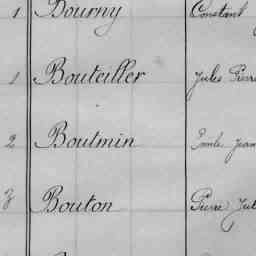 1 Dourny Constant
1 Bouteiller Jules Pierre
2 Boutmin Emile Jean
3 Bouton Pierre Jul